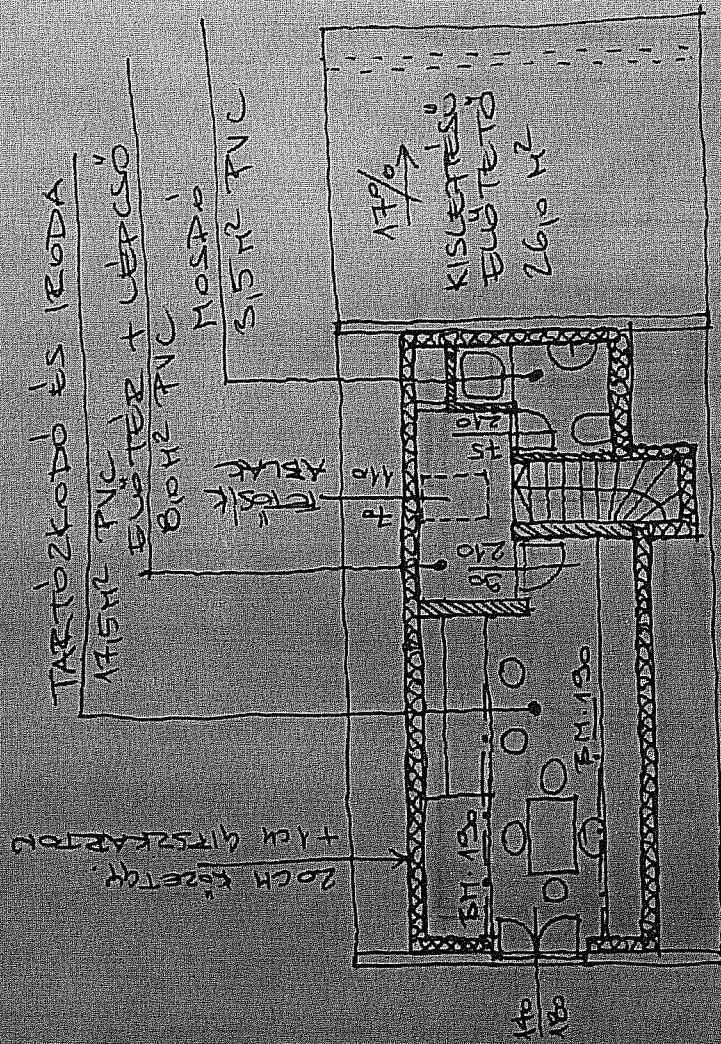 TARTÓZKODÓ ÉS IRODA
17,5 M² PVC
ELŐTÉR + LÉPCSŐ
8,0 M² PVC
MOSDÓ
3,5 M² PVC
17%
KISLEJTÉSŰ
ELŐTETŐ
26,0 M²
TETŐSÍK
ABLAK
78
110
75
210
90
210
BM. 190
BM. 190
20CM KŐZETGY.
+ 1 CM GIPSZKARTON
140
180